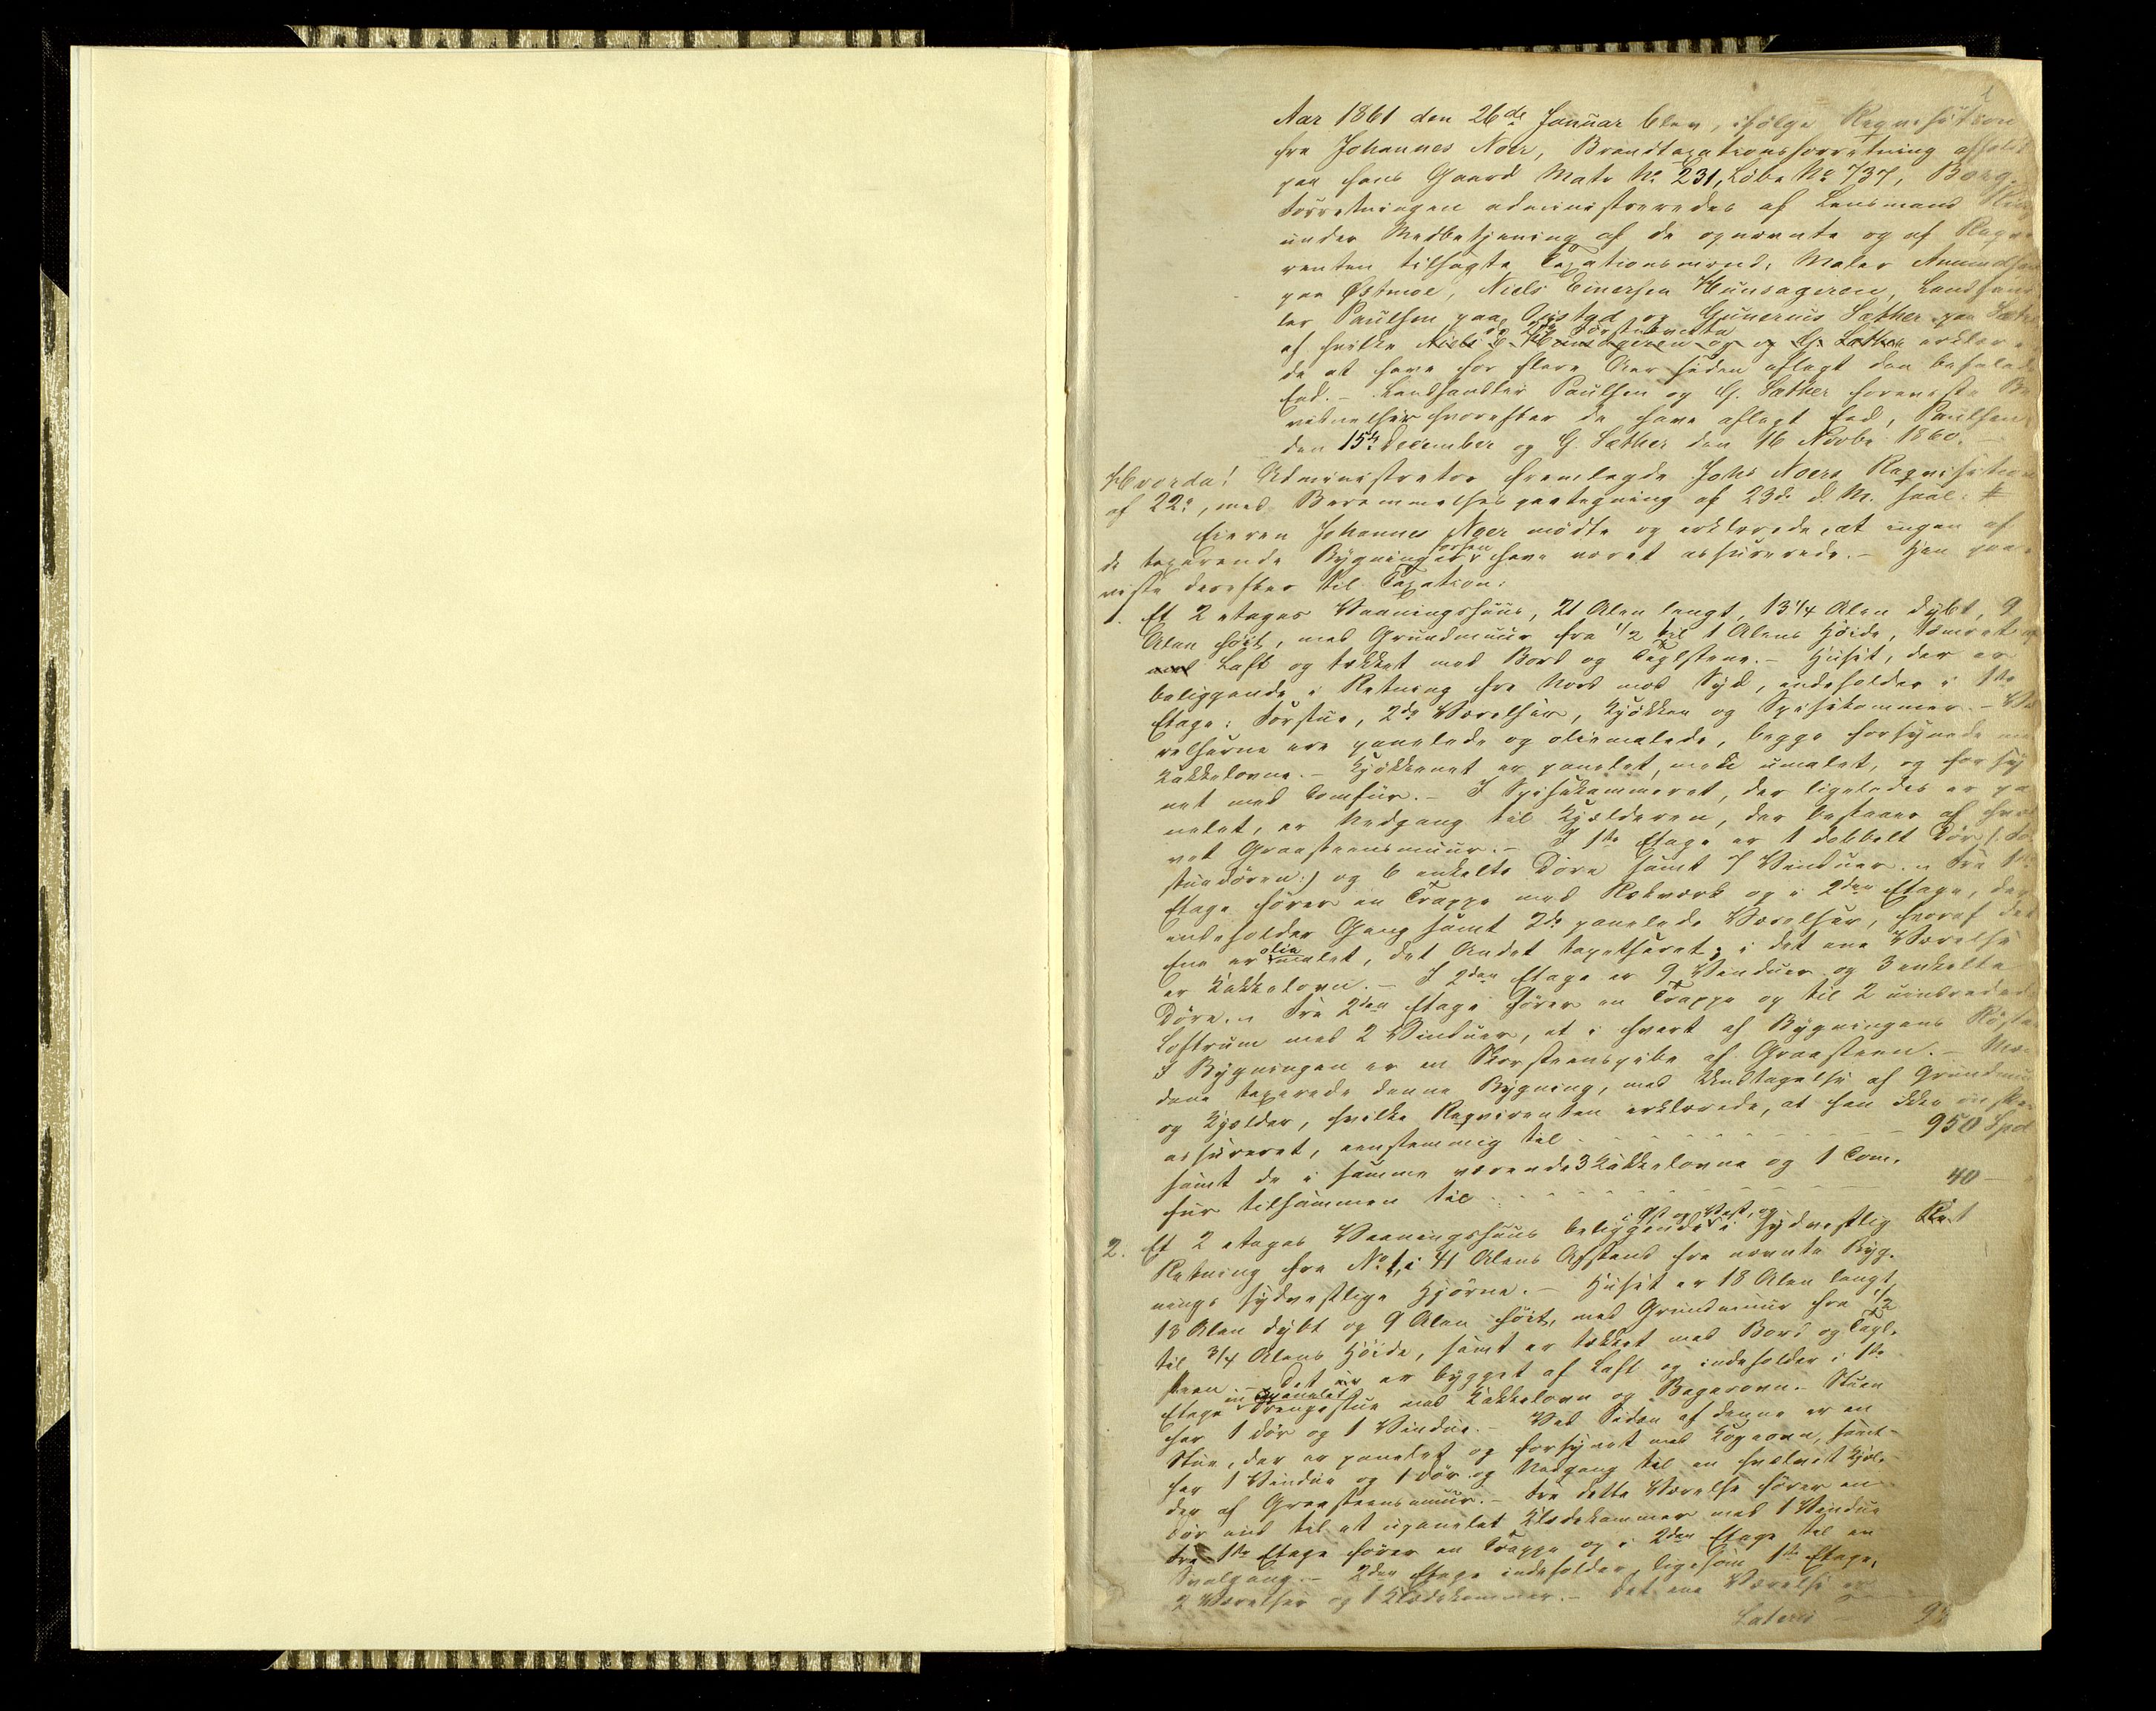 1
Aar 1861 den 26de Januar blev, ifølge Reqvisition
fra Johannes Noer, Brandtaxationsforretning afholdt
paa hans Gaard Matr No 231, Løbe No 737, Berg.
Forretningen administreredes af Lensmand
under Medbetjening af de opnævnte og af Reqvi
renten tilsagte Taxationsmænd: Maler Amundsen
paa Østmoe, Niels Einersen Hunsageren, Landhand
ler Paulsen paa Opstad og Gunerius Sæther paa Sæther
de 2de Førstnævnte
af hvilke Niels E. Hunsageren og G. Sæther erklære
de at have for flere Aar siden aflagt den befalede
Eed. - Landhandler Paulsen og G. Sæther foreviste Be
vidnelser hvorefter de have aflagt Eed, Paulsen
den 15de December og G. Sæther den 16 Novbr 1860. -
Hvorda! Administrator fremlagde Johs Noers Reqvisition
af 22de, med Berammelsespaategning af 23de d. M. saal:
Eieren Johannes Noer mødte og erklærede, at ingen af
de taxerende Bygninger have været assurerede. - Han paa-
viste derefter til Taxation:
1. Et 2 etages Vaaningshuus, 21 Alen langt, 13 1/4 Alen dybt, 9
Alen høit, med Grundmuur fra 1/2 til 1 Alens Høide, tømret af
Laft og tækket med Bord og Taglstene. - Huset, der er
beliggende i Retning fra Nord mod Syd, indeholder i 1ste
Etage: Forstue, 2de Værelser, Kjøkken og Spisekammer. - Væ
relserne ere panelede og oliemalede, begge forsynede med
Kakkelovne. - Kjøkkenet er panelet, men umalet, og forsy
net med Comfur. - I Spisekammeret, der ligeledes er pa
nelet, er Nedgang til Kjælderen, der bestaaer af hvæl
vet Graasteensmuur. - I 1ste Etage er 1 dobbelt Dør (: For
stuedøren :) og 6 enkelte Døre samt 7 Vinduer. - Fra 1ste
Etage fører en Trappe med Rekværk op i 2den Etage, der
indeholder Gang samt 2de panelede Værelser, hvoraf det
olie
Ene er malet, det Andet tapetseret; i det ene Værelse
er Kakkelovn. - I 2den Etage er 9 Vinduer og 3 enkelte
Døre. - Fra 2den Etage fører en Trappe op til 2 uindredede
Loftrum med 2 Vinduer, et i hvert af Bygningens Røste
I Bygningen er en Skorsteenspibe af Graasteen. - Mæn
dene taxerede denne Bygning, med Undtagelse af Grundmuur
og Kjælder, hvilke Reqvirenten erklærede, at han ikke ønskede
assureret, eenstemmig til - - - - 950 Spd
samt de i samme værende 3 Kakkelovne og 1 Com-
fur tilsammen til - - - - 40 -
i Øst og Vest, og
2. Et 2 etages Vaaningshuus beliggende i sydvestlig Ret
Retning fra No 1, i 41 Alens Afstand fra nævnte Byg-
nings sydvestlige Hjørne. - Huset er 18 Alen langt,
13 Alen dybt og 9 Alen høit, med Grundmuur fra 1/2
til 3/4 Alens Høide, samt er tækket med Bord og Tagl-
steen. - Det er bygget af Laft og indeholder i 1ste
en upanelet
Etage Drengestue med Kakkelovn og Bagerovn. - Stuen
har 1 Dør og 1 Vindue. - Ved Siden af denne er en
Stue, der er panelet og forsynet med Kogeovn, samt
har 1 Vindue og 1 Dør og Nedgang til en hvælvet Kjæl-
der af Graasteensmuur. - Fra dette Værelse fører en
Dør ind til et upanelet Klædekammer med 1 Vindue
Fra 1ste Etage fører en Trappe op i 2den Etage til en
Svalgang. - 2den Etage indeholder, ligesom 1ste Etage,
2 Værelser og 1 Klædekammer. - Det ene Værelse er
Lateris - 9